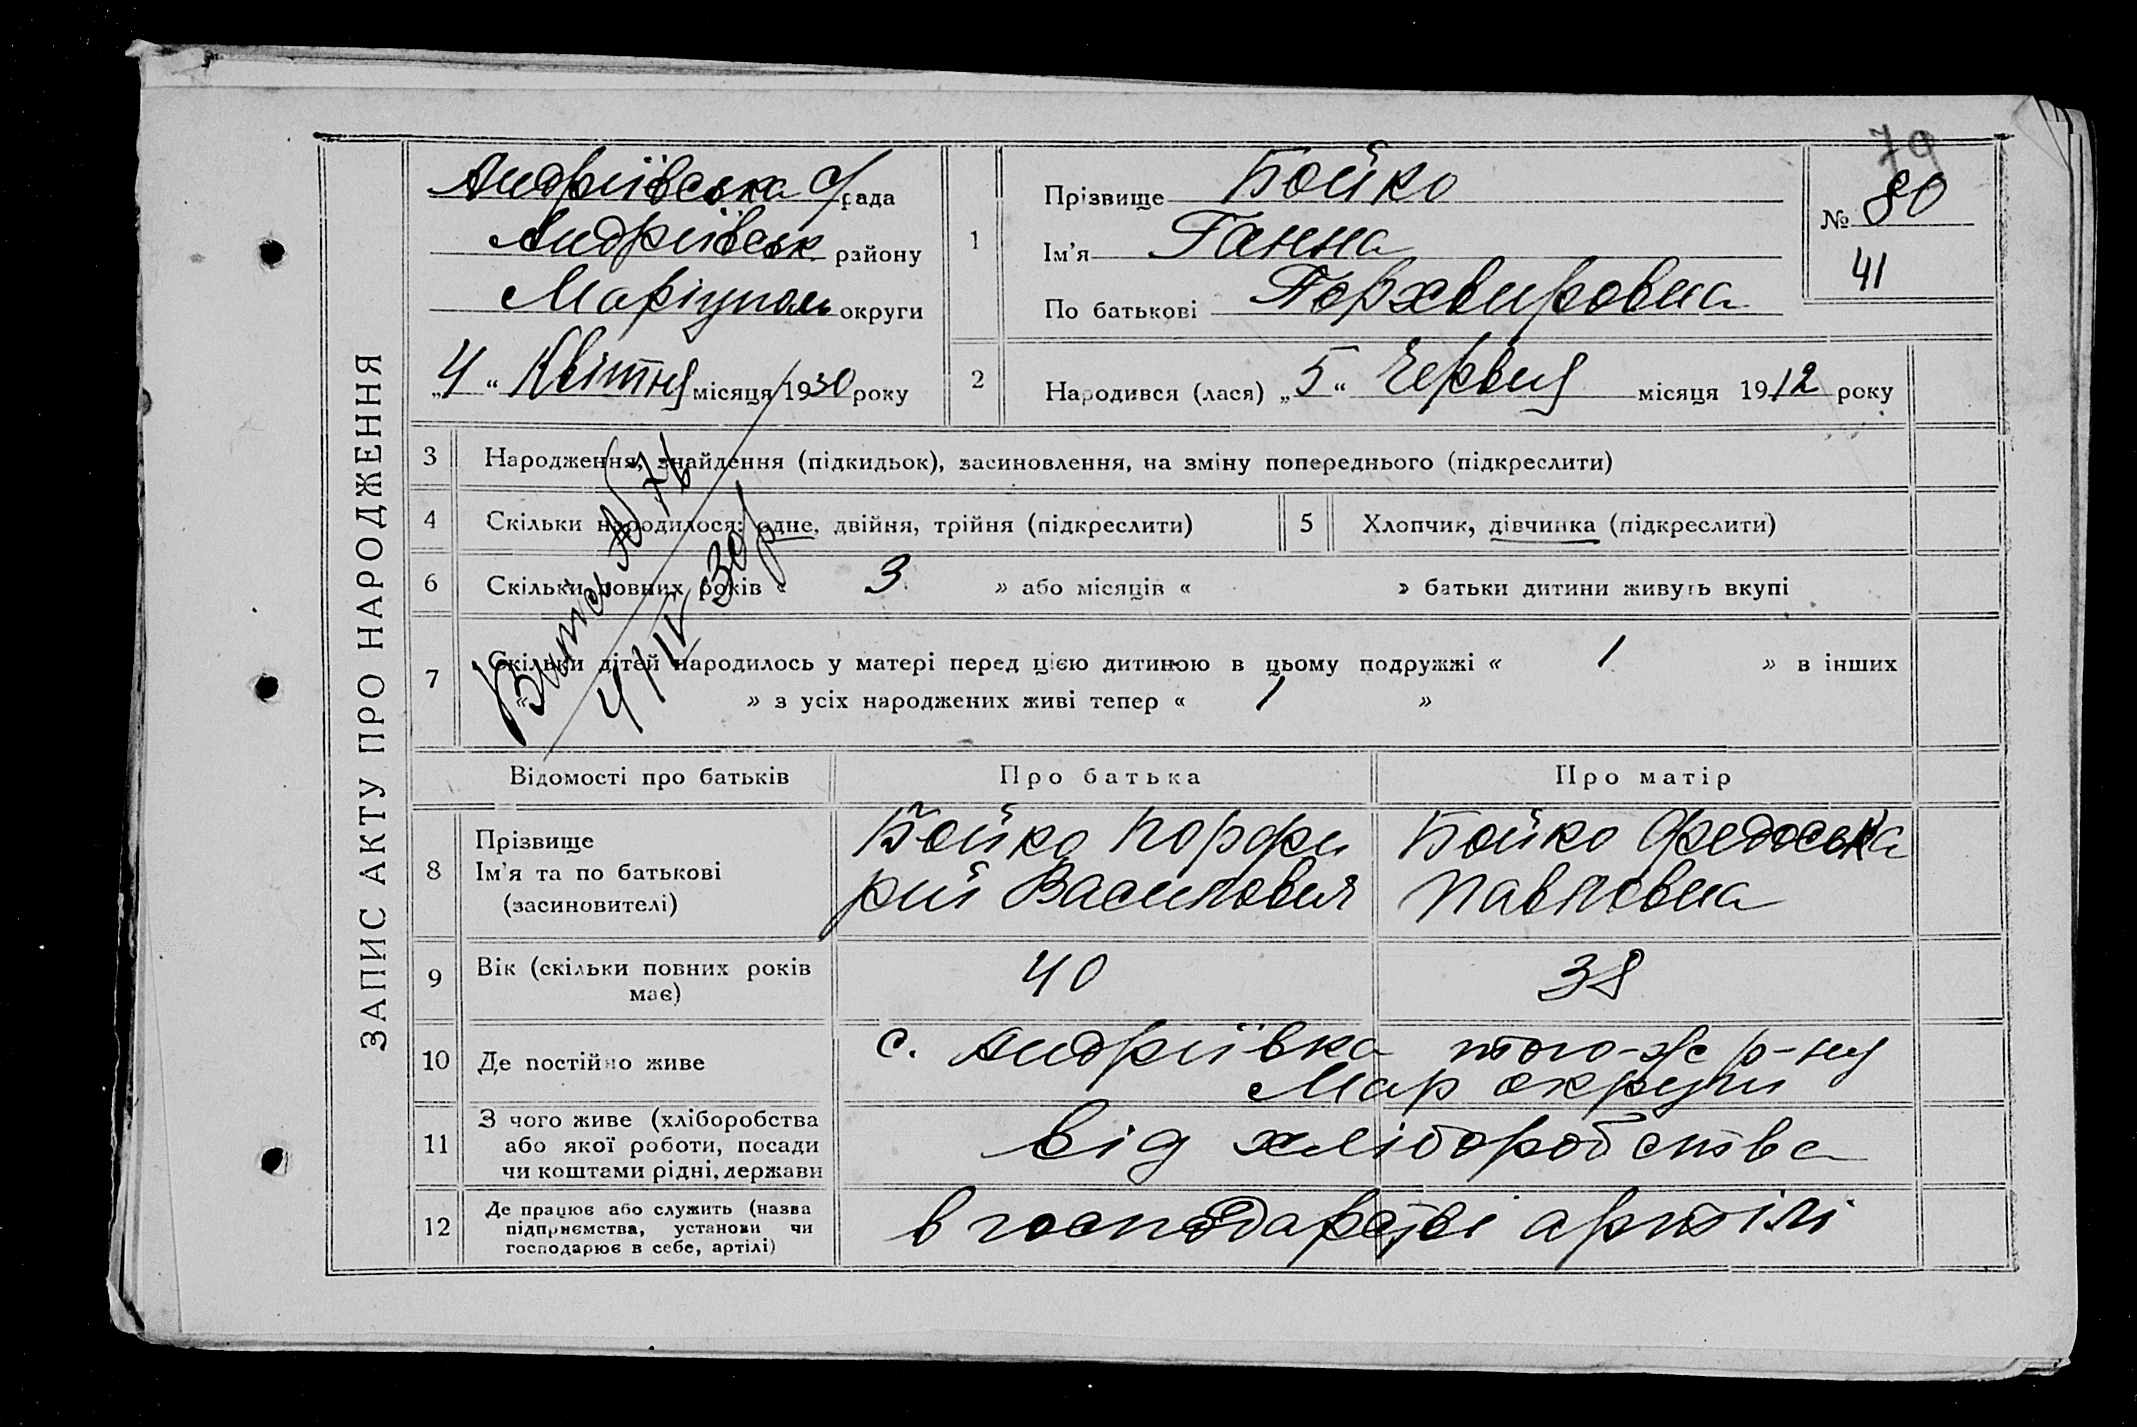 79
Андріївська с/рада
Андріївськ району
Маріуполь округи
„4“ Квітня місяця 1930 року
1
Прізвище Бойко
Ім'я Ганна
По батькові Порхвировна
№ 80
41
2
Народився (лася) „5“ Червня місяця 1912 року
ЗАПИС АКТУ ПРО НАРОДЖЕННЯ
3 Народження, знайдення (підкидьок), засиновлення, на зміну попереднього (підкреслити)
4 Скільки народилося: одне, двійня, трійня (підкреслити)
5 Хлопчик, дівчинка (підкреслити)
6 Скільки повних років « 3 » або місяців « » батьки дитини живуть вкупі
7 Скільки дітей народилось у матері перед цією дитиною в цьому подружжі « 1 » в інших
« » з усіх народжених живі тепер « 1 »
Витяг № 76
4/IV 30 р
Відомості про батьків
Про батька
Про матір
8 Прізвище
Ім'я та по батькові
(засиновителі)
Бойко Порфи
рий Василович
Бойко Федоська
Павловна
9 Вік (скільки повних років
має)
40
38
10 Де постійно живе
с. Андріївка того-ж р-ну
Мар округи
11 З чого живе (хліборобства
або якої роботи, посади
чи коштами рідні, держави
від хліборобства
12 Де працює або служить (назва
підприємства, установи чи
господарює в себе, артілі)
в господарстві артілі